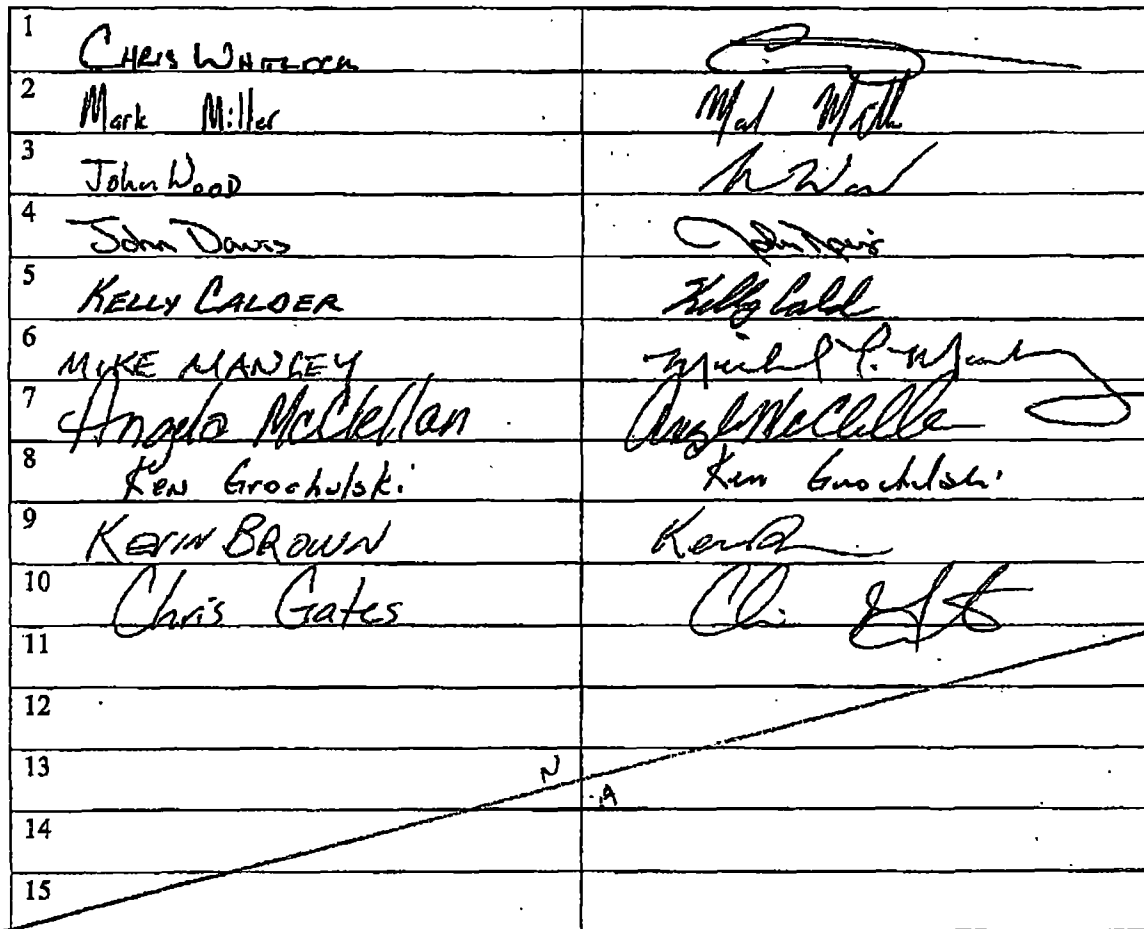 1 CHRIS WHITLOCK
2 Mark Miller Mark Miller
3 John Wood
4 John Davis John Davis
5 KELLY CALDER Kelly Cald
6 MIKE MANLEY
7 Angela McClellan Angela McClellan
8 Ken Grochulski Ken Grochulski
9 KEVIN BROWN
10 Chris Gates
11
12
13 N A
14
15